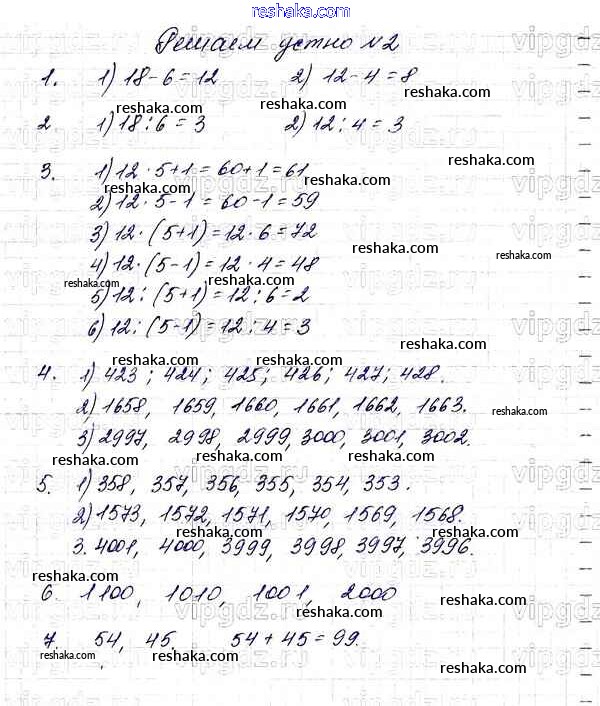 reshaka.com
Решаем устно №2
1. 1) 18-6=12 2) 12-4=8
reshaka.com reshaka.com
2 1) 18:6=3 2) 12:4=3
reshaka.com
3. 1) 12·5+1=60+1=61
reshaka.com
2) 12·5-1=60-1=59
3) 12·(5+1)=12·6=72
reshaka.com reshaka.com
4) 12·(5-1)=12·4=48
reshaka.com reshaka.com
5) 12:(5+1)=12:6=2
6) 12:(5-1)=12:4=3
reshaka.com
reshaka.com reshaka.com
4. 1) 423; 424; 425; 426; 427; 428.
2) 1658, 1659, 1660, 1661, 1662, 1663.
reshaka.com
3) 2997, 2998, 2999, 3000, 3001, 3002.
reshaka.com reshaka.com
5. 1) 358, 357, 356, 355, 354, 353.
2) 1573, 1572, 1571, 1570, 1569, 1568.
reshaka.com
3. 4001, 4000, 3999, 3998, 3997, 3996.
reshaka.com
6. 1100, 1010, 1001, 2000
reshaka.com
reshaka.com
7. 54, 45, 54+45=99.
reshaka.com reshaka.com
reshaka.com